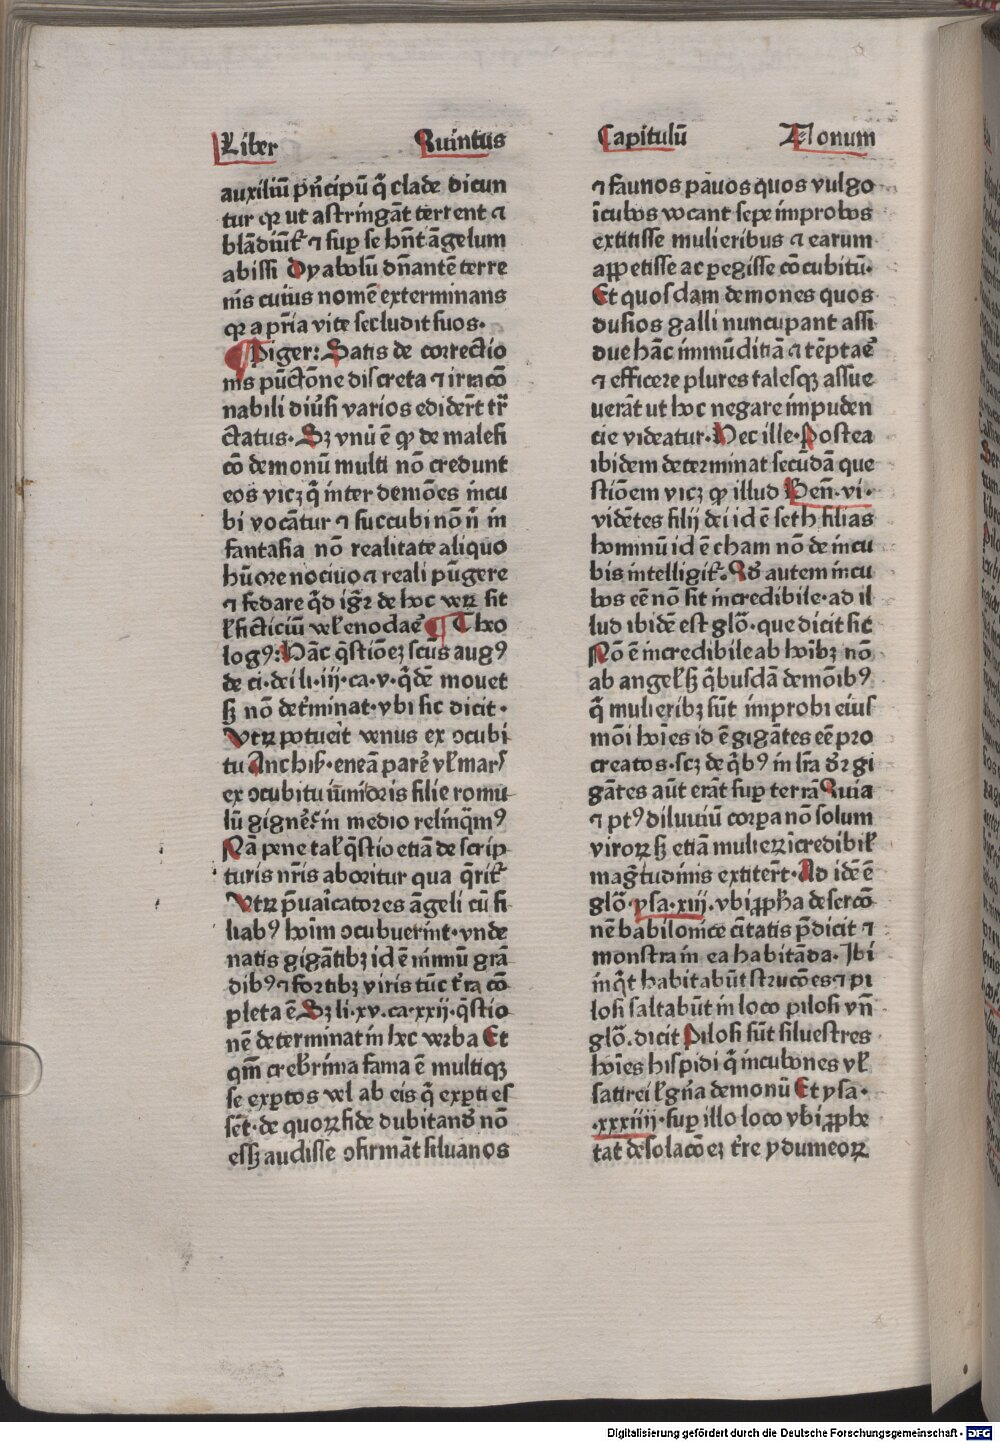 Liber Quintus
Capitulū Nonum
auxiliū pn̄cipū q̄ clade dicun
tur qꝛ ut astringāt terrent ⁊
blādiūt᷑ ⁊ suꝑ se hn̄t āgelum
abissi dyabolū dn̄antē terre
nis cuius nomē exterminans
qꝛ a pr̄ia vite secludit suos.
¶ Piger: Satis de correctio
nis pūctōne discreta ⁊ irracō
nabili diūsi varios edidert̄ tr̄
ctatus. Sꝫ vnū ē ꝙ de malefi
cō demonū multi nō credunt
eos vicꝫ q̄ inter demōes incu
bi vocātur ⁊ succubi nō n̄ in
fantasia nō realitate aliquo
hūore nociuo ⁊ reali pūgere
⁊ fedare q̄d igr̄ de hoc veꝝ sit
ł ficticiū vel enodae᷑ ¶ Theo
logꝰ: Hāc q̄stiōeꝫ sc̄us augꝰ
de ci. dei li. iij. ca. v. q̄dē mouet
sꝫ nō det̄minat. vbi sic dicit.
Vtꝝ potueit̄ venus ex ↄcubi
tu Anchisꝭ. eneā parē vł mars
ex ↄcubitu iūmōris filie romu
lū gignē᷑ in medio relinq̄mꝰ
Nā pene tał q̄stio etiā de scrip
turis nr̄is aboritur qua q̄rit᷑
Vtꝝ p̄uaricatores āgeli cū fi
liabꝰ hoīm ↄcubuerint. vnde
natis gigātibꝫ id ē nimiū grā
dibꝰ ⁊ fortibꝫ viris tūc t̄ra cō
pleta ē Sꝫ li. xv. ca. xxij. q̄stio
nē determinat in hec verba Et
qm̄ creb̄rima fama ē multiqꝫ
se exꝑtos vel ab eis q̄ exꝑti es
sēt. de quoꝝ fide dubitandꝰ nō
essꝫ audisse ↄfirmāt siluanos
⁊ faunos pauos quos vulgo
īcubos vocant sepe improbos
extitisse mulieribus ⁊ earum
aꝑpetisse ac ꝑegisse cōcubitū.
Et quosdam demones quos
dusios galli nuncupant assi
due hāc immūditiā ⁊ tēptae᷑
⁊ efficere plures talesqꝫ asseue
uerāt ut hoc negare impuden
tie videatur. Hec ille. Postea
ibidem determinat secūdā que
stiōem vicꝫ ꝙ illud Gen̄. vi.
vidētes filij dei id ē seth filias
hominū id ē cham nō de incu
bis intelligit᷑. Qd̓ autem incu
bos eē nō sit incredibile. ad il
lud ibidē est glō. que dicit sic
Nō ē incredibile ab hoībꝫ nō
ab angeł sꝫ q̄busdā demōibꝰ
q̄ mulieribꝫ sūt improbi eius
mōi hoīes id ē gigātes eē pro
creatos. scꝫ de q̄bꝰ in lr̄a d̓r gi
gātes aūt erāt suꝑ terrā Quia
⁊ ptꝰ diluuiū corꝑa nō solum
viroꝝ sꝫ etiā mulieꝝ īcredibił
magn̄tudinis extitert̄. Ad idē ē
glō. ysa. xiij. vbi ꝓph̄a de sercō
nē babilonice ciītatis p̄dicit ⁊
monstra in ea habitāda. Ibi
inq̄t habitabūt strucōes ⁊ pi
losi saltabūt in loco pilosi vn̄
glō. dicit Pilosi sūt siluestres
hoīes hispidi q̄ incubones vł
satirei ł gn̄a demonū Et ysa.
.xxxiiij. suꝑ illo loco vbi ꝓphe
tat desolacōeꝫ t̄re ydumeoꝝ
Digitalisierung gefördert durch die Deutsche Forschungsgemeinschaft - DFG